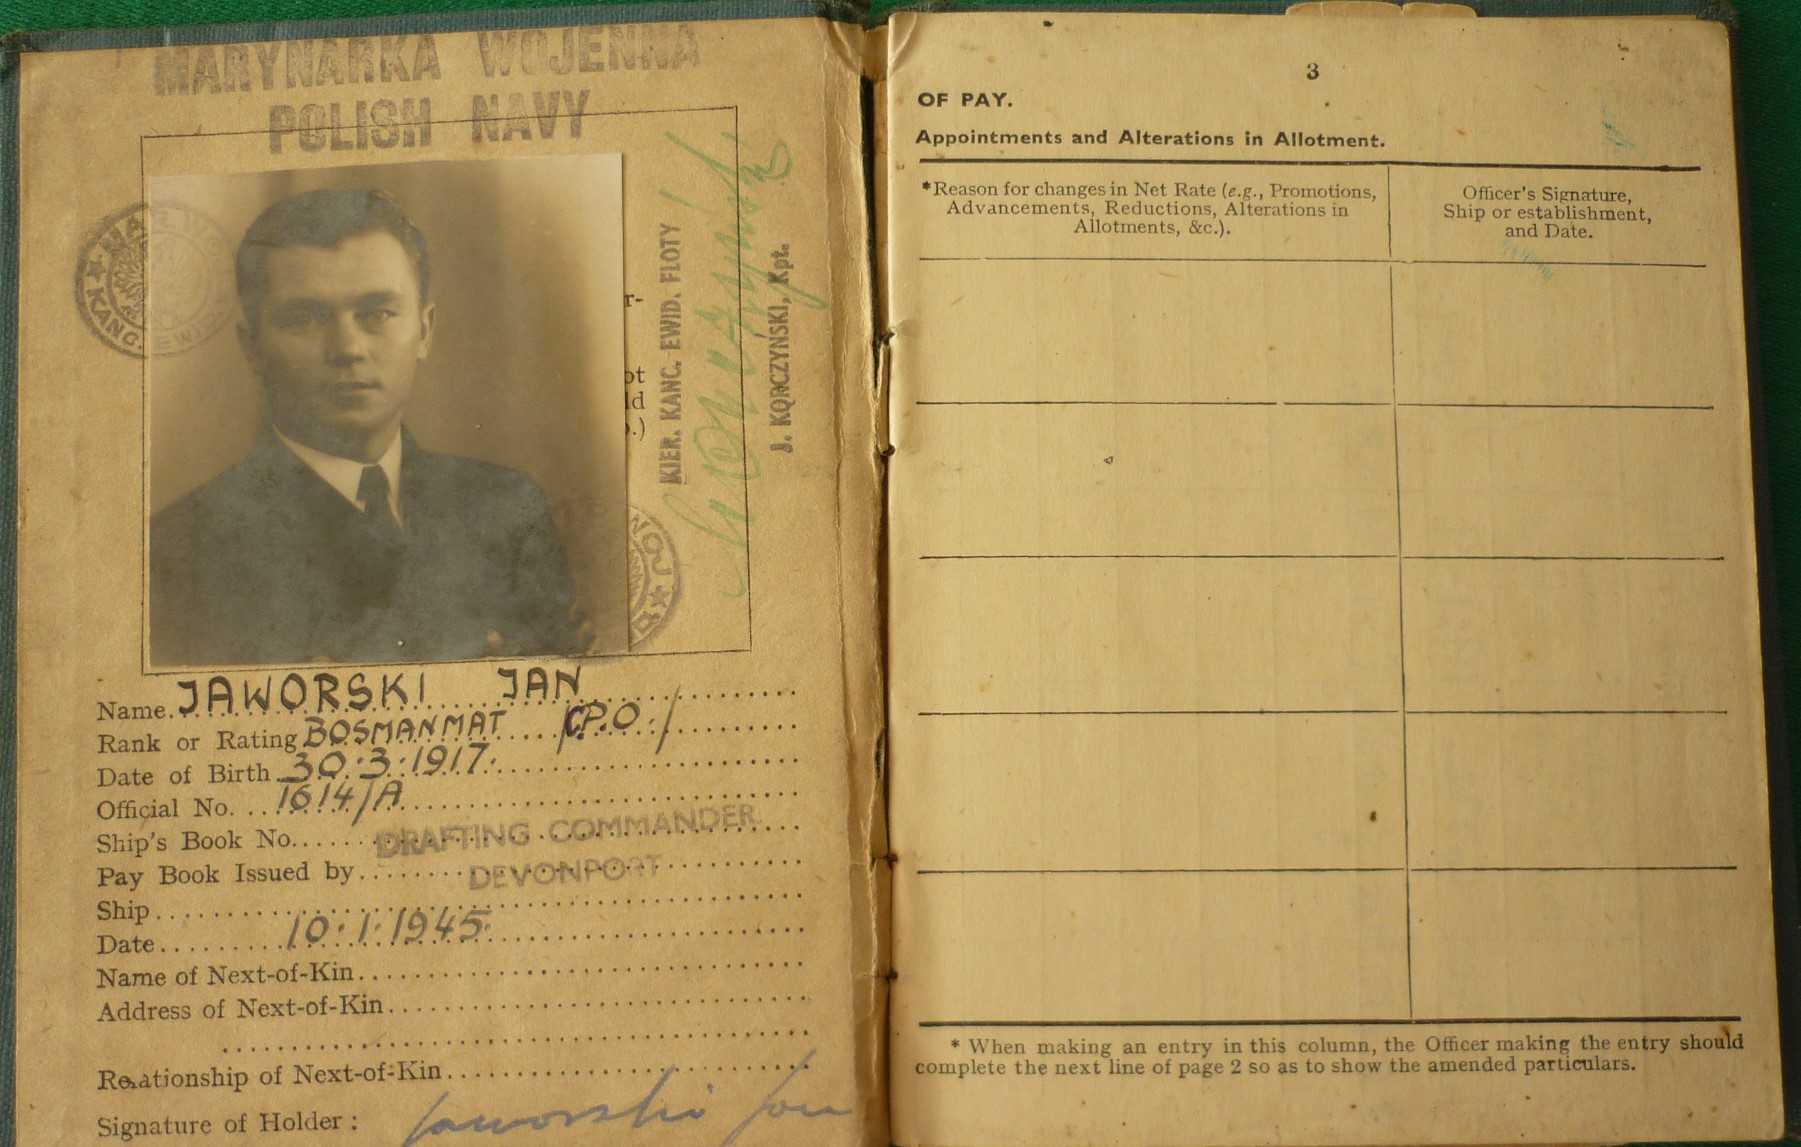 MARYNARKA WOJENNA
POLISH NAVY
KANC.
EWID.
WOJ
r-
ot
ld
.)
KIER. KANC. EWID. FLOTY
J. KORCZYŃSKI, Kpt.
Name. JAWORSKI JAN
Rank or Rating BOSMANMAT /C.P.O./
Date of Birth 30.3.1917.
Official No. 1614/A
Ship's Book No.
DRAFTING COMMANDER
Pay Book Issued by
DEVONPORT
Ship
Date 10.1.1945.
Name of Next-of-Kin
Address of Next-of-Kin
Relationship of Next-of-Kin
Signature of Holder: Jaworski Jan
3
OF PAY.
Appointments and Alterations in Allotment.
*Reason for changes in Net Rate (e.g., Promotions,
Advancements, Reductions, Alterations in
Allotments, &c.).
Officer's Signature,
Ship or establishment,
and Date.
* When making an entry in this column, the Officer making the entry should
complete the next line of page 2 so as to show the amended particulars.